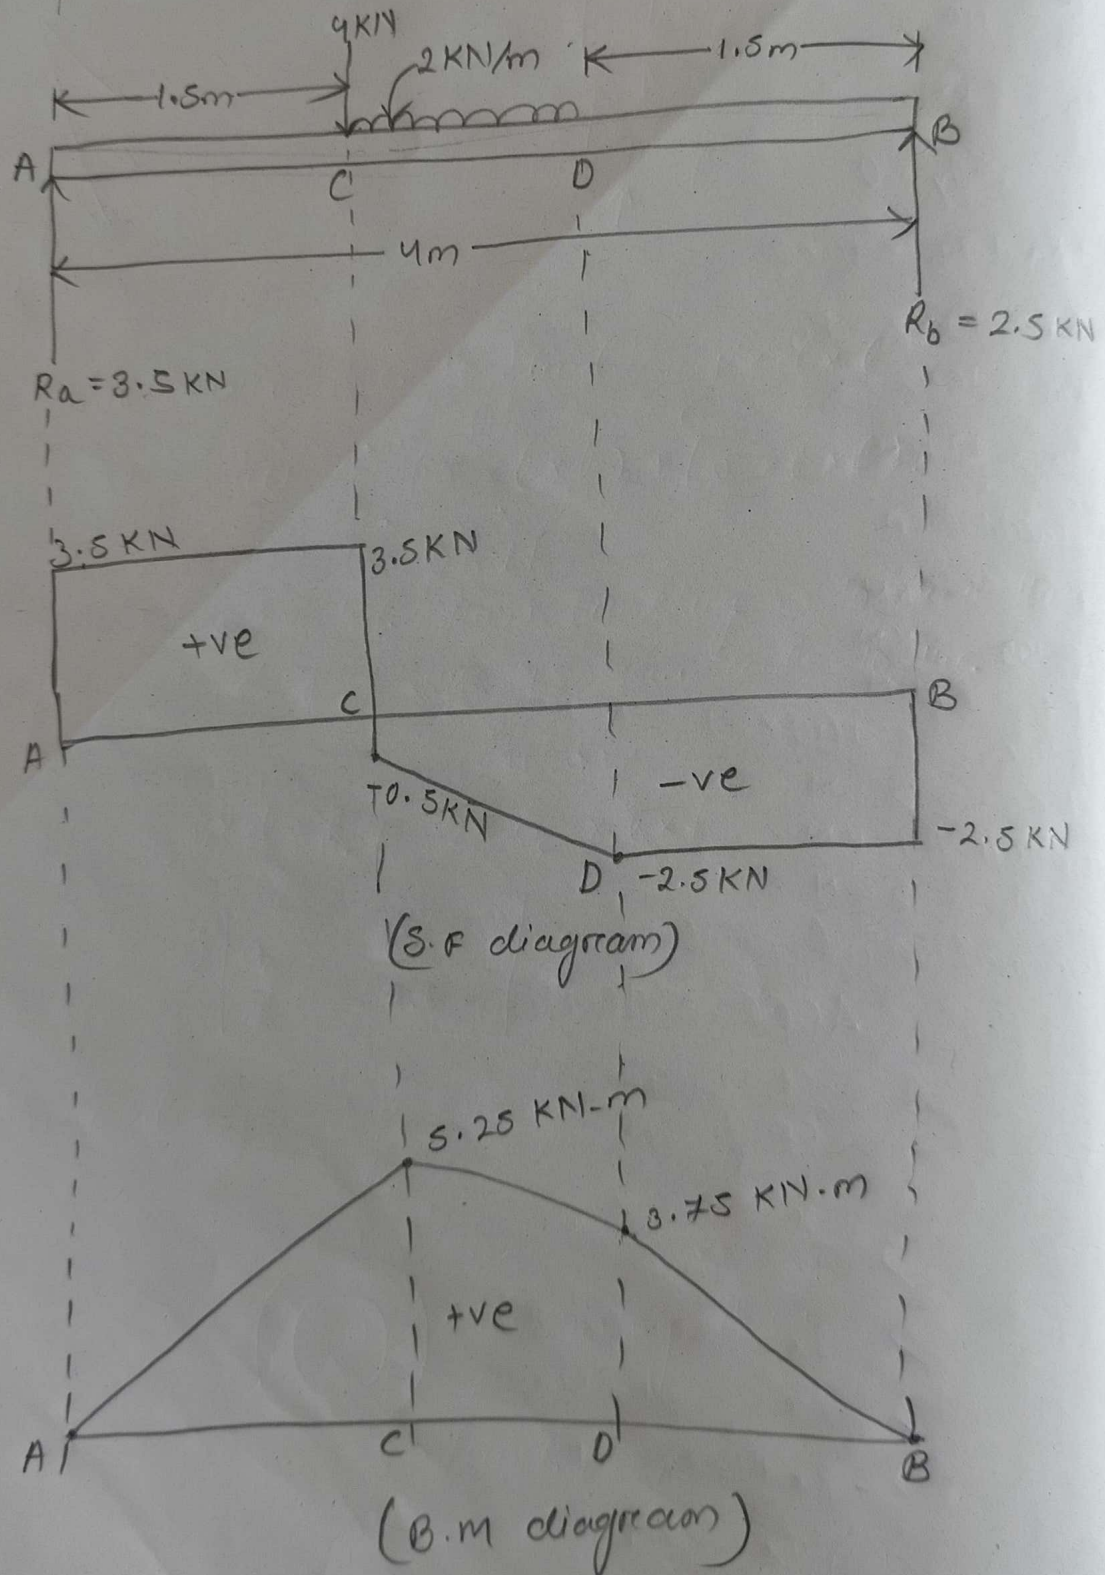 4KN
2KN/m
1.5m
1.5m
A
B
C
D
4m
Rb = 2.5 KN
Ra = 3.5 KN
3.5 KN
3.5KN
+ve
C
B
A
-ve
-0.5KN
-2.5 KN
D
-2.5KN
(S.F diagram)
5.25 KN-m
3.75 KN.m
+ve
A
C
D
B
(B.M diagram)